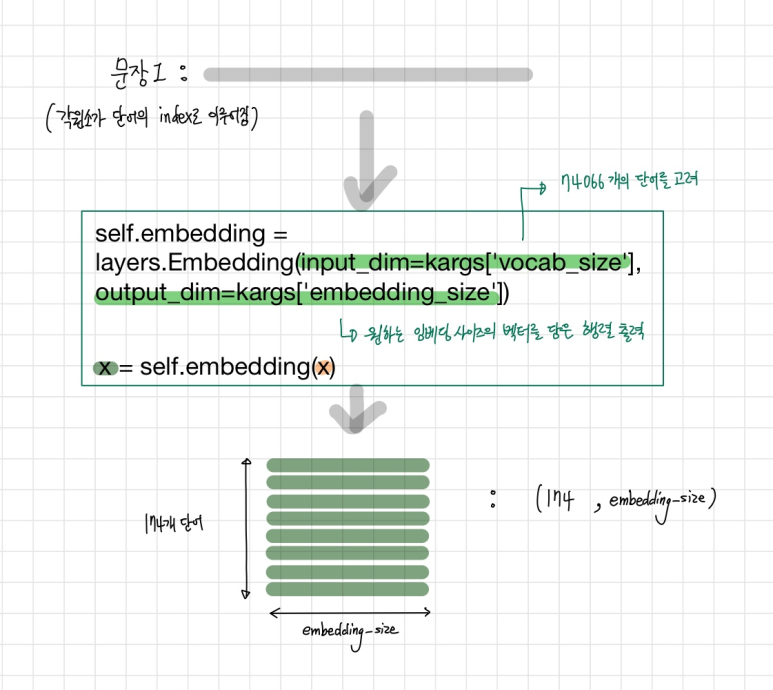 문장 1 :
(각 원소가 단어의 index로 이루어짐)
74066 개의 단어를 고려
self.embedding =
layers.Embedding(input_dim=kargs['vocab_size'],
output_dim=kargs['embedding_size'])
원하는 임베딩 사이즈의 벡터를 담은 행렬 출력
x = self.embedding(x)
174개 단어
: (174 , embedding-size)
embedding-size